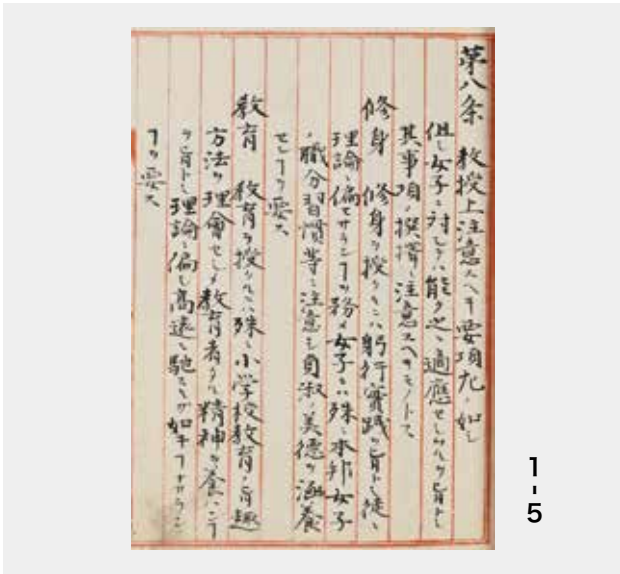 第八条 教授上注意スヘキ要項左ノ如シ
但シ女子ニ対シテハ能ク之ニ適應セシムルヲ旨トシ
其事項ノ撰擇ニ注意スヘキモノトス
修身 修身ヲ授クルニハ躬行實践ヲ旨トシ徒ニ
理論ニ偏セサランヿヲ務メ女子ニハ殊ニ本邦女子
ノ職分習慣等ニ注意シ貞淑ノ美徳ヲ涵養
センヿヲ要ス
教育 教育ヲ授クルニハ殊ニ小学校教育ノ旨趣
方法ヲ理會セシメ教育者タル精神ヲ養ハンヿ
ヲ旨トシ理論ニ偏シ高遠ニ馳スルガ如キヿナカラン
ヿヲ要ス
1-5